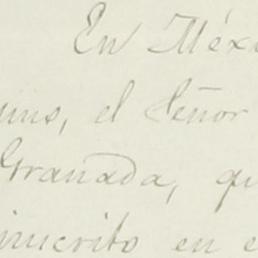 En Méx
uno, el Señor
Granada, qu
inscrito en e